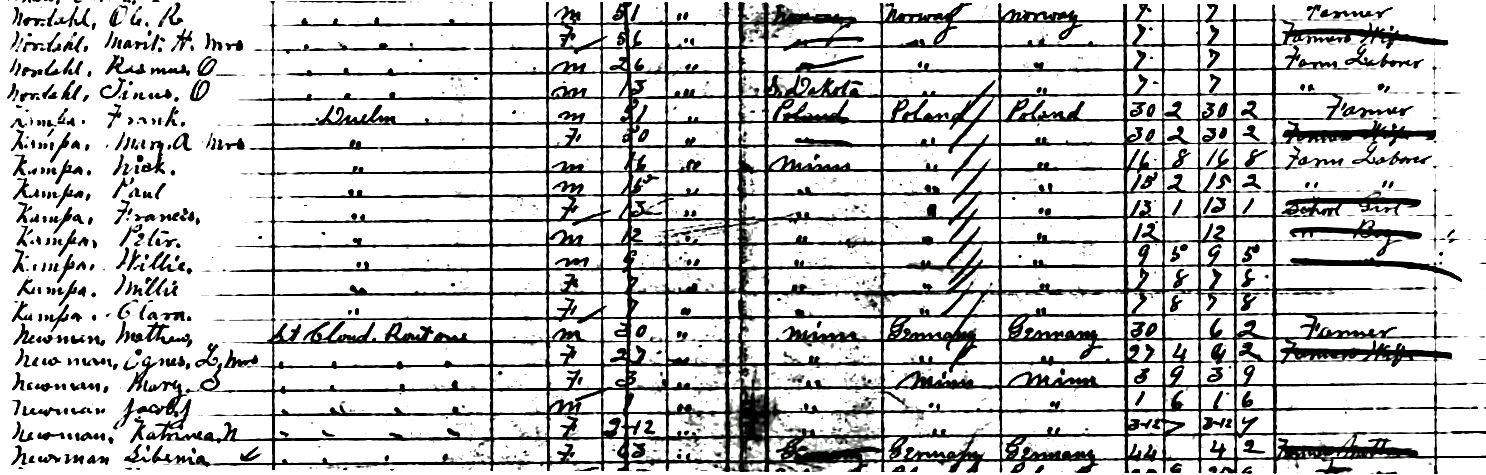 Nordahl, Ole R " " " " m 51 " Norway Norway Norway 7 7 Farmer
Nordahl, Marit H. Mrs " " " " F 56 " " " " 7 7 Farmers Wife
Nordahl, Rasmus O " " " " m 26 " " " " 7 7 Farm Laborer
Nordahl, Tinus. O " " " " m 13 " S. Dakota " " 7 7 " "
Kampa. Frank. Duelm m 51 " Poland Poland Poland 30 2 30 2 Farmer
Kampa. Mary. A Mrs " F 50 " " " " 30 2 30 2 Farmers Wife
Kampa. Nick. " m 16 " Minn " " 16 8 16 8 Farm Laborer
Kampa. Paul " m 15 " " " " 15 2 15 2 " "
Kampa, Francis, " F 13 " " " " 13 1 13 1 School Girl
Kampa, Peter. " m 12 " " " " 12 12 " Boy
Kampa. Willie. " m 9 " " " " 9 5 9 5 "
Kampa. Millie " F 7 " " " " 7 8 7 8
Kampa. Clara. " F 7 " " " " 7 8 7 8
Newman, Mathew St Cloud. Route one m 30 " Minn Germany Germany 30 6 2 Farmer
Newman, Agnes, L, Mrs " " " " F 27 " " " " 27 4 4 2 Farmers Wife
Newman, Mary. S " " " " F 3 " " Minn Minn 3 9 3 9
Newman Jacob J " " " " m 1 " " " " 1 6 1 6
Newman, Katrinea. N " " " " F 3-12 " " " " 3-12 7 3-12 7
Newman Libenia " " " " F 63 " Germany Germany Germany 44 4 2 Farmers Mother